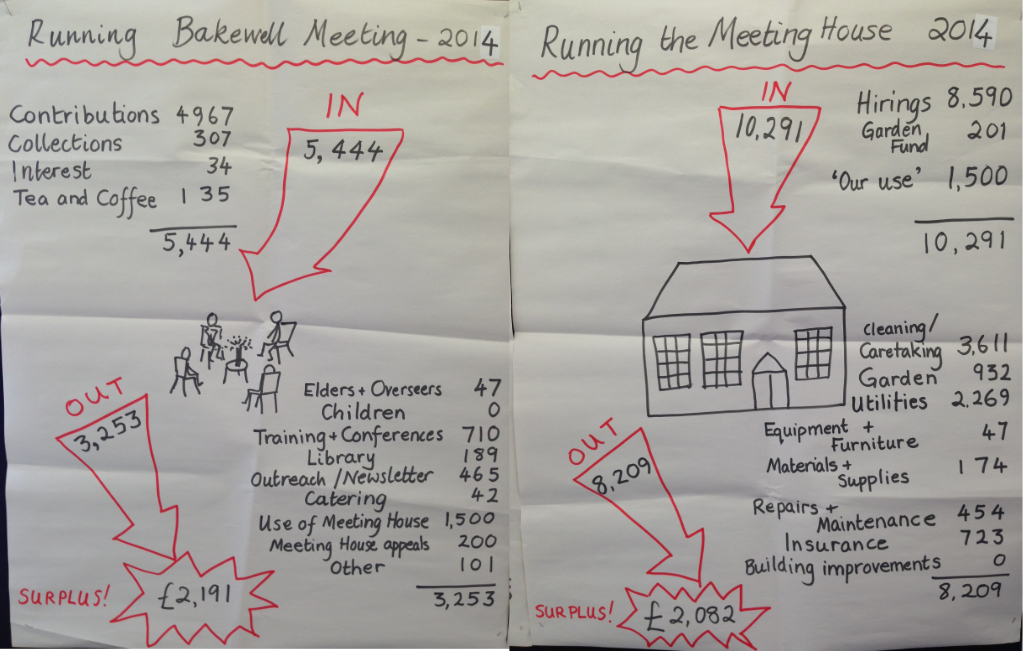 Running Bakewell Meeting - 2014
IN
Contributions 4967
5,444
Collections 307
Interest 34
Tea and Coffee 135
5,444
OUT
3,253
Elders + Overseers 47
Children 0
Training + Conferences 710
Library 189
Outreach / Newsletter 465
Catering 42
Use of Meeting House 1,500
Meeting House appeals 200
Other 101
3,253
SURPLUS!
£2,191
Running the Meeting House 2014
IN
10,291
Hirings 8,590
Garden 201
Fund
'Our use' 1,500
10,291
Cleaning/
Caretaking 3,611
Garden 932
Utilities 2.269
OUT
8,209
Equipment + 47
Furniture
Materials + 174
Supplies
Repairs + 454
Maintenance
Insurance 723
Building improvements 0
8,209
SURPLUS!
£2,082